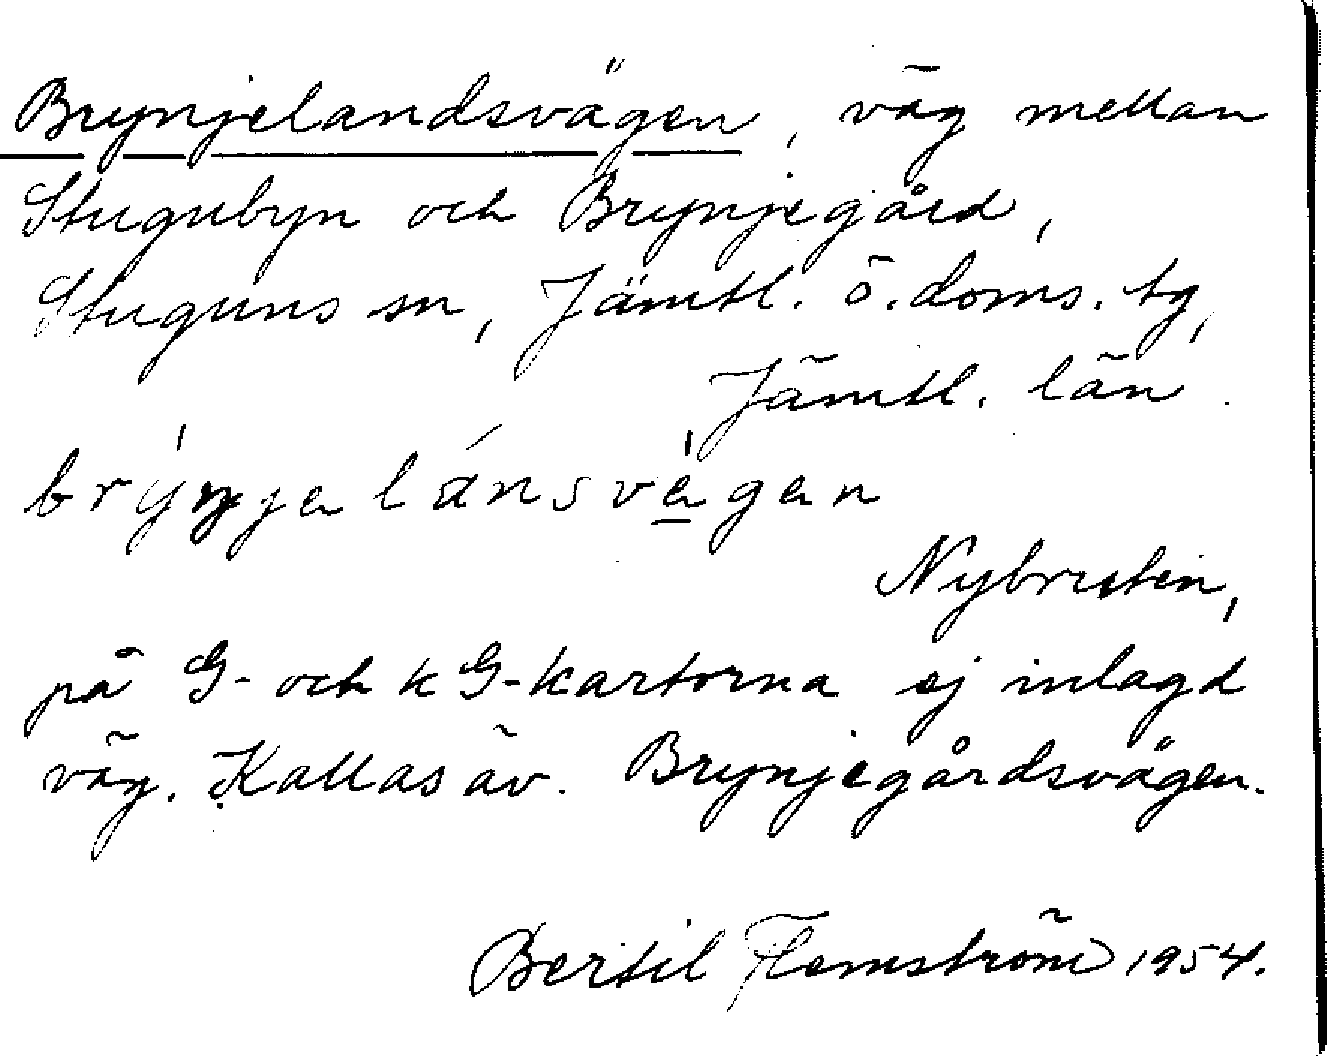 Brynjelandsvägen, väg mellan
Stugubyn och Brynjegård,
Stuguns sn, Jämtl. ö. doms. tg,
Jämtl. län.
brýnjelánsvègen
Nybruten,
på G- och kG-kartorna ej inlagd
väg. Kallas äv. Brynjegårdsvägen.
Bertil Flemström 1954.